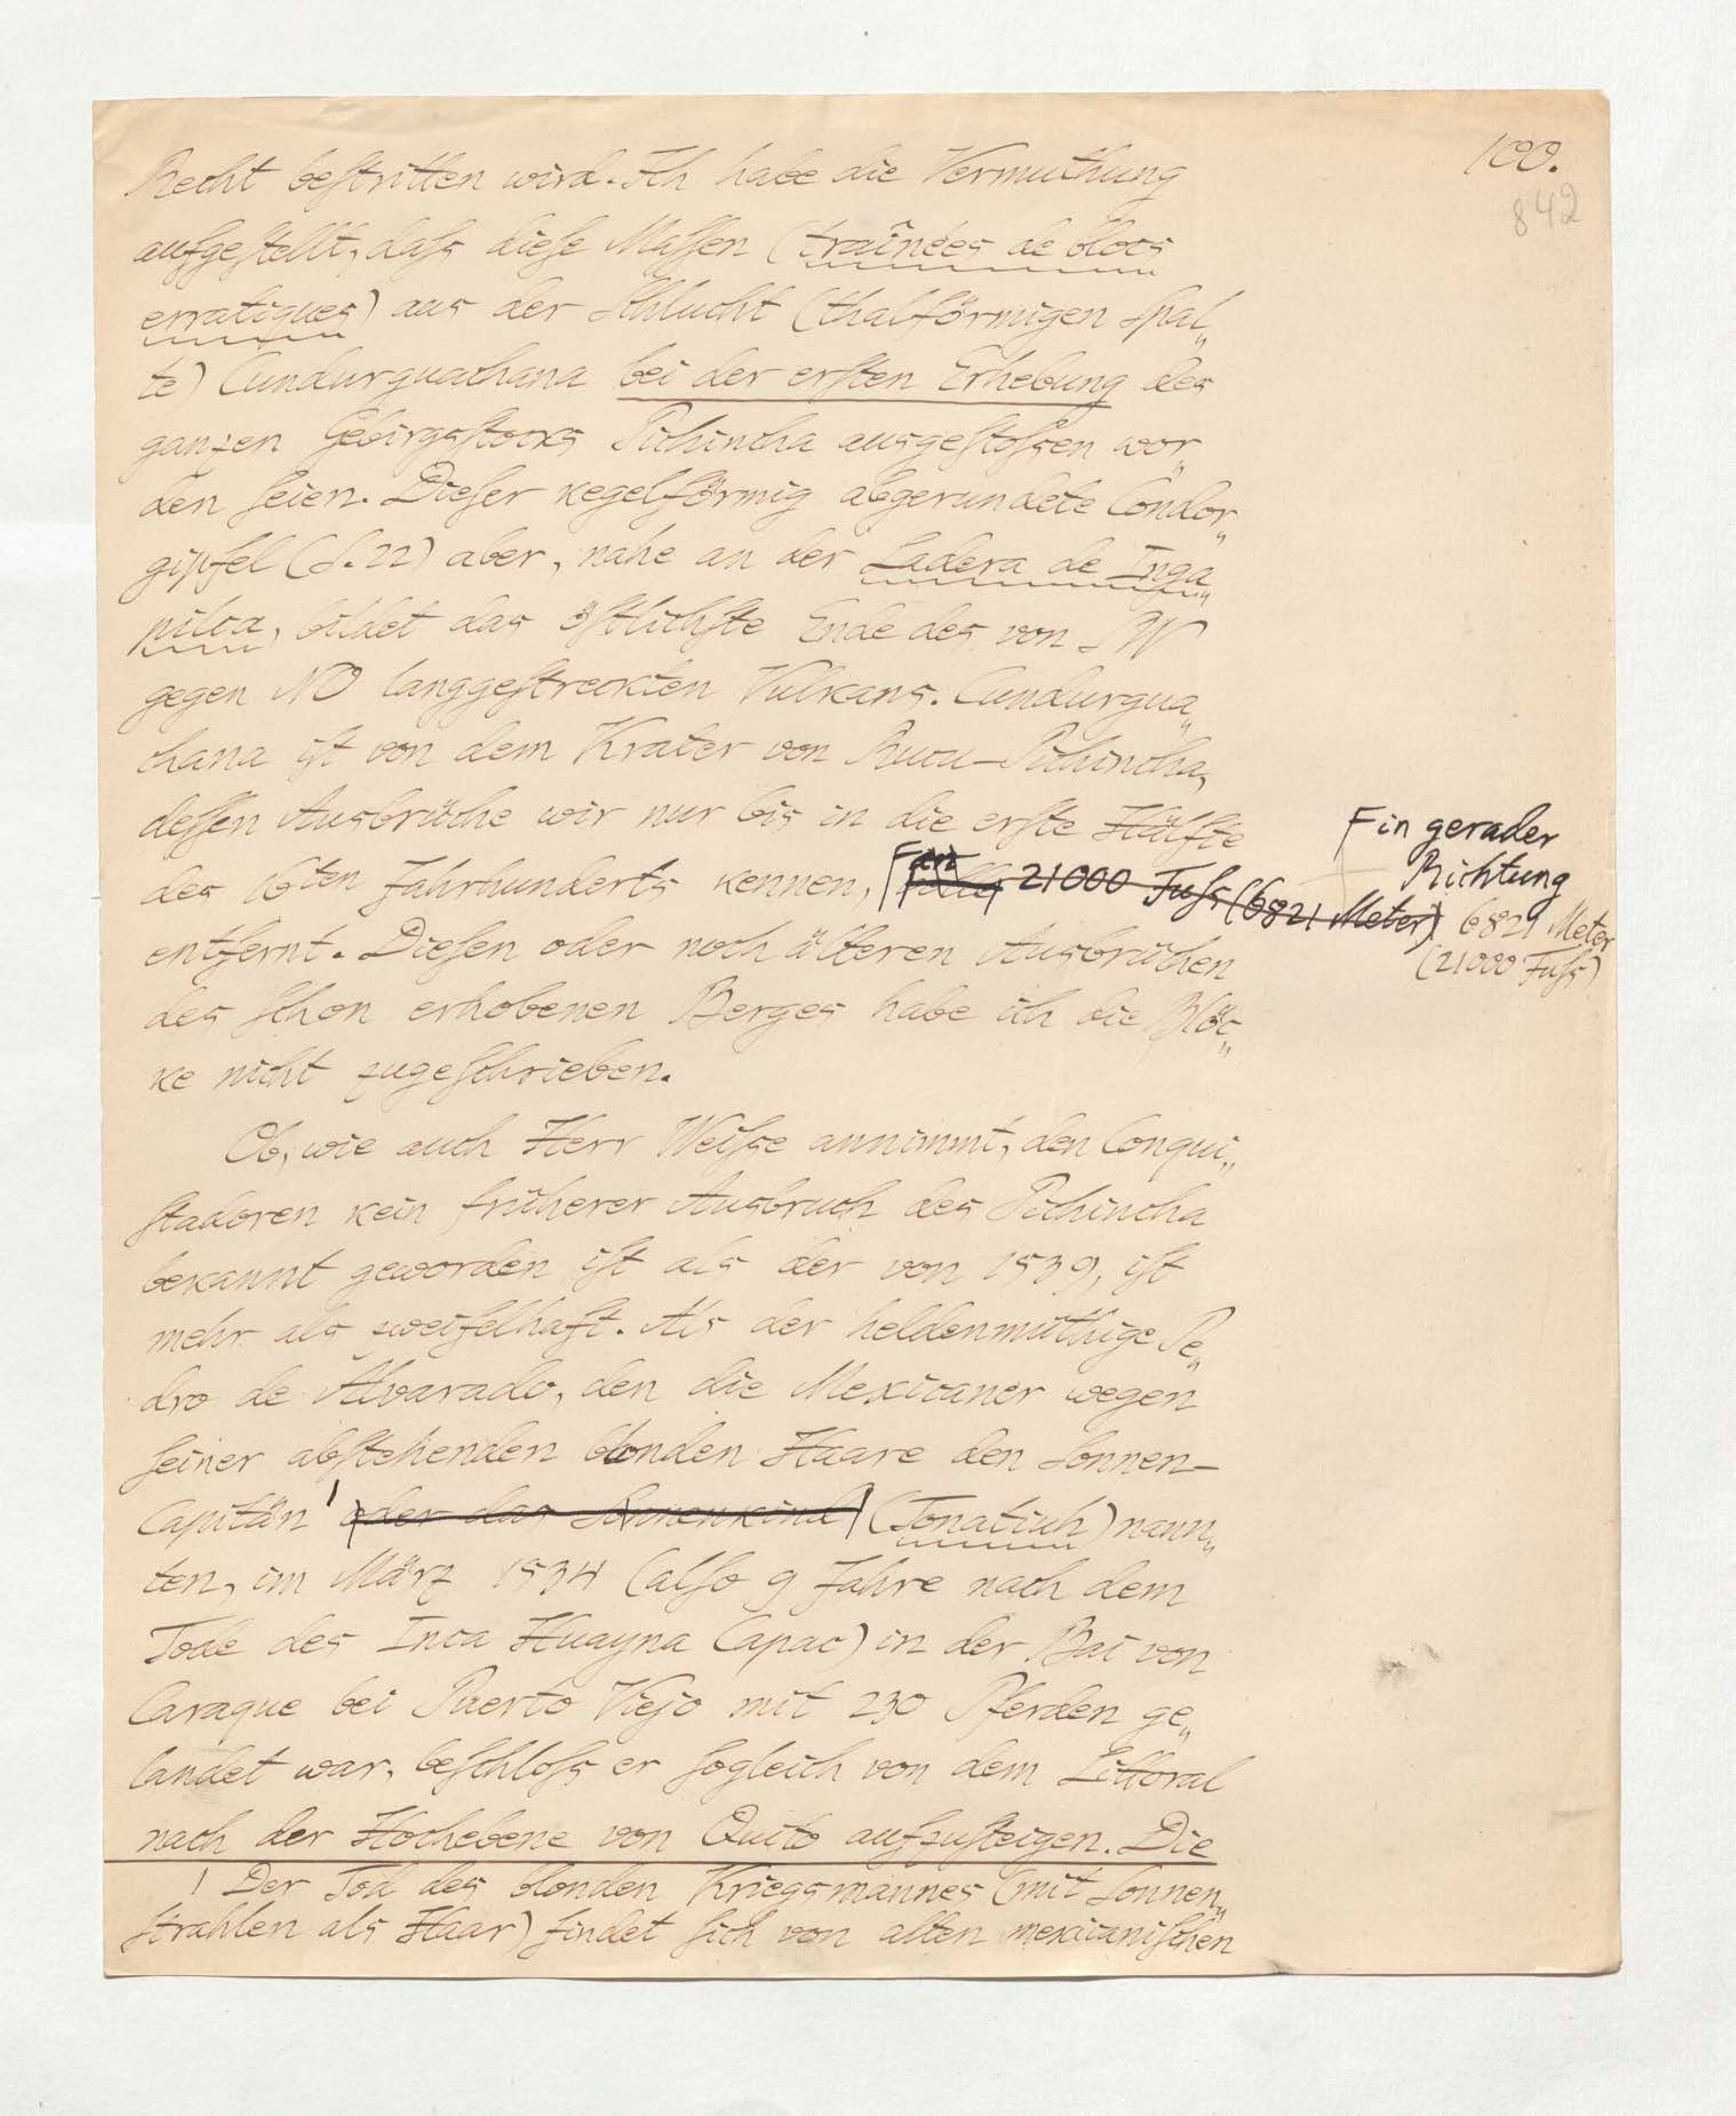 100.
842
Recht beſtritten wird. Ich habe die Vermuthung
aufgeſtellt, daſs dieſe Maſſen (traînées de blocs
erratiques) aus der Schlucht (thalförmigen Spal„
te) Cundurguachana bei der erſten Erhebung des
ganzen Gebirgsſtocks Pichincha ausgeſtoſsen wor„
den ſeien. Dieſer kegelförmig abgerundete Condor„
gipfel (S. 22) aber, nahe an der Ladera de Inga„
pilca, bildet das öſtlichſte Ende des von SW
gegen NO langgeſtreckten Vulkans. Cundurgua„
chana iſt von dem Krater von Rucu-Pichincha,
deſſen Ausbrüche wir nur bis in die erſte Hälfte
des 16ten Jahrhunderts kennen, 21000 Fuſs (6821 Meter)
in gerader
Richtung
6821 Meter
(21000 Fuſs)
entfernt. Dieſen oder noch älteren Ausbrüchen
des ſchon erhobenen Berges habe ich die Blöc„
ke nicht zugeſchrieben.
Ob, wie auch Herr Weiſse annimmt, den Conqui„
ſtadoren kein früherer Ausbruch des Pichincha
bekannt geworden iſt als der von 1539, iſt
mehr als zweifelhaft. Als der heldenmüthige Pe„
dro de Alvarado, den die Mexicaner wegen
ſeiner abſtehenden blonden Haare den Sonnen-
Capitän¹ oder das Sonnenkind (Tonatiuh) nann„
ten, im März 1534 (alſo 9 Jahre nach dem
Tode des Inca Huayna Capac) in der Bai von
Caraque bei Puerto Viejo mit 230 Pferden ge„
landet war, beſchloſs er ſogleich von dem Littoral
nach der Hochebene von Quito aufzuſteigen. Die
1 Der Tod des blonden Kriegsmannes (mit Sonnen„
ſtrahlen als Haar) findet ſich von alten mexicaniſchen